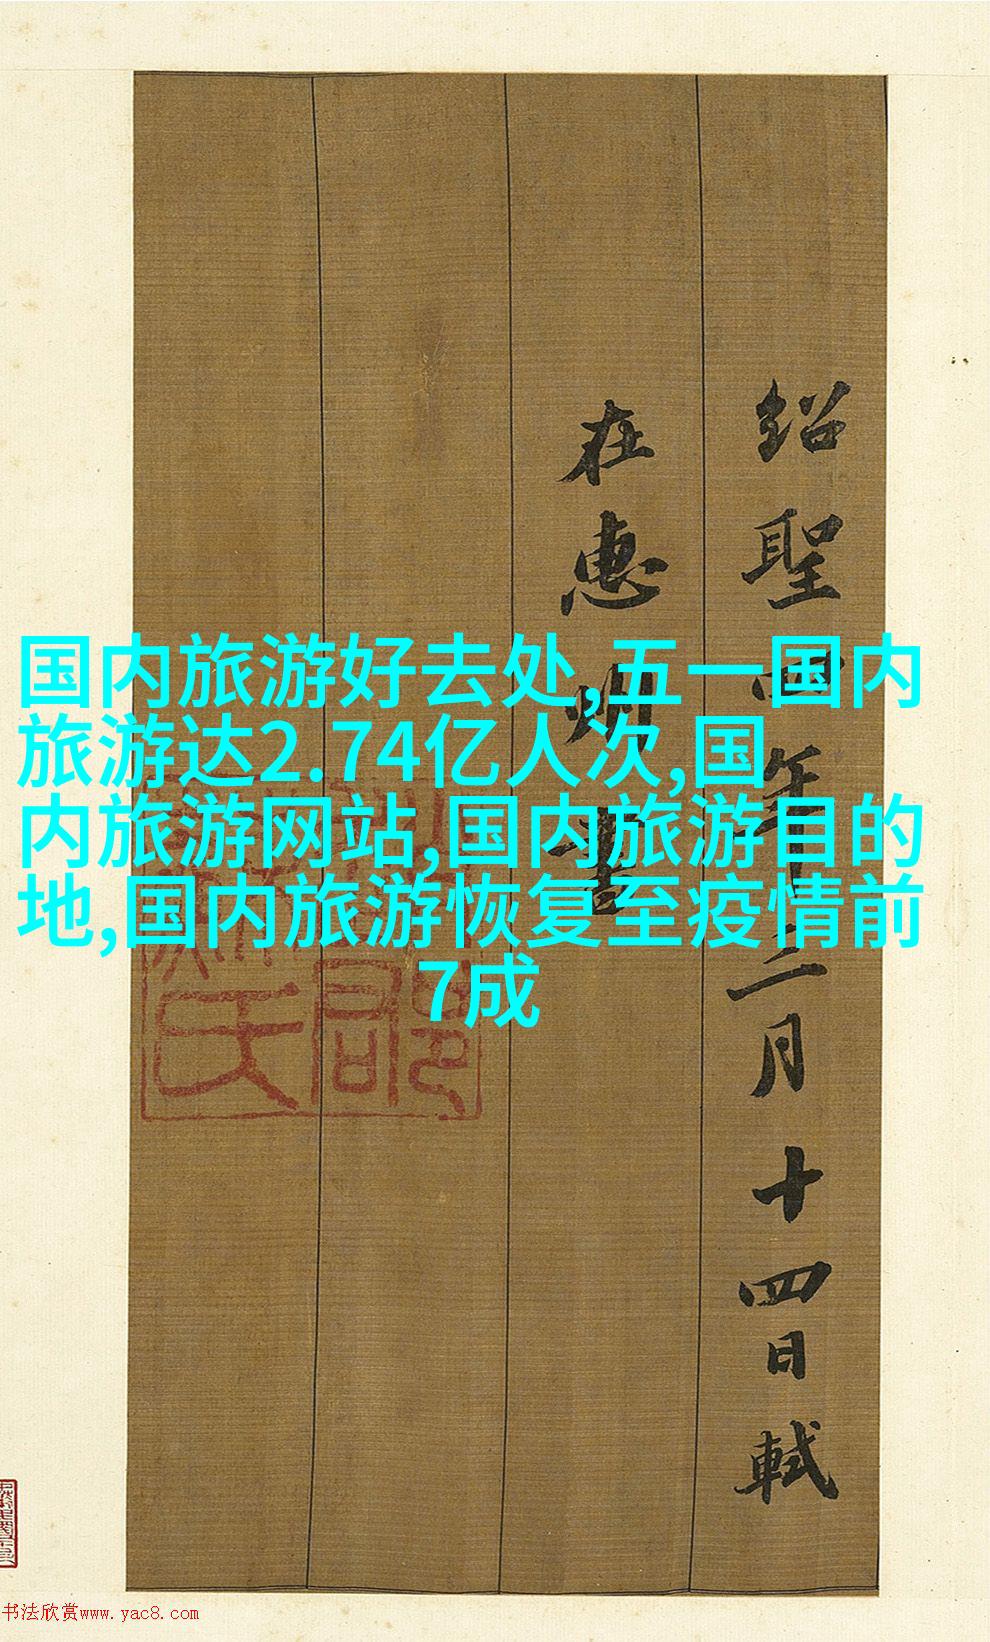 国内旅游好去处,五一国内
旅游达2.74亿人次,国
内旅游网站,国内旅游目的
地,国内旅游恢复至疫情前
7成
绍聖四年二月十四日軾
在惠州書
书法欣赏www.yac8.com